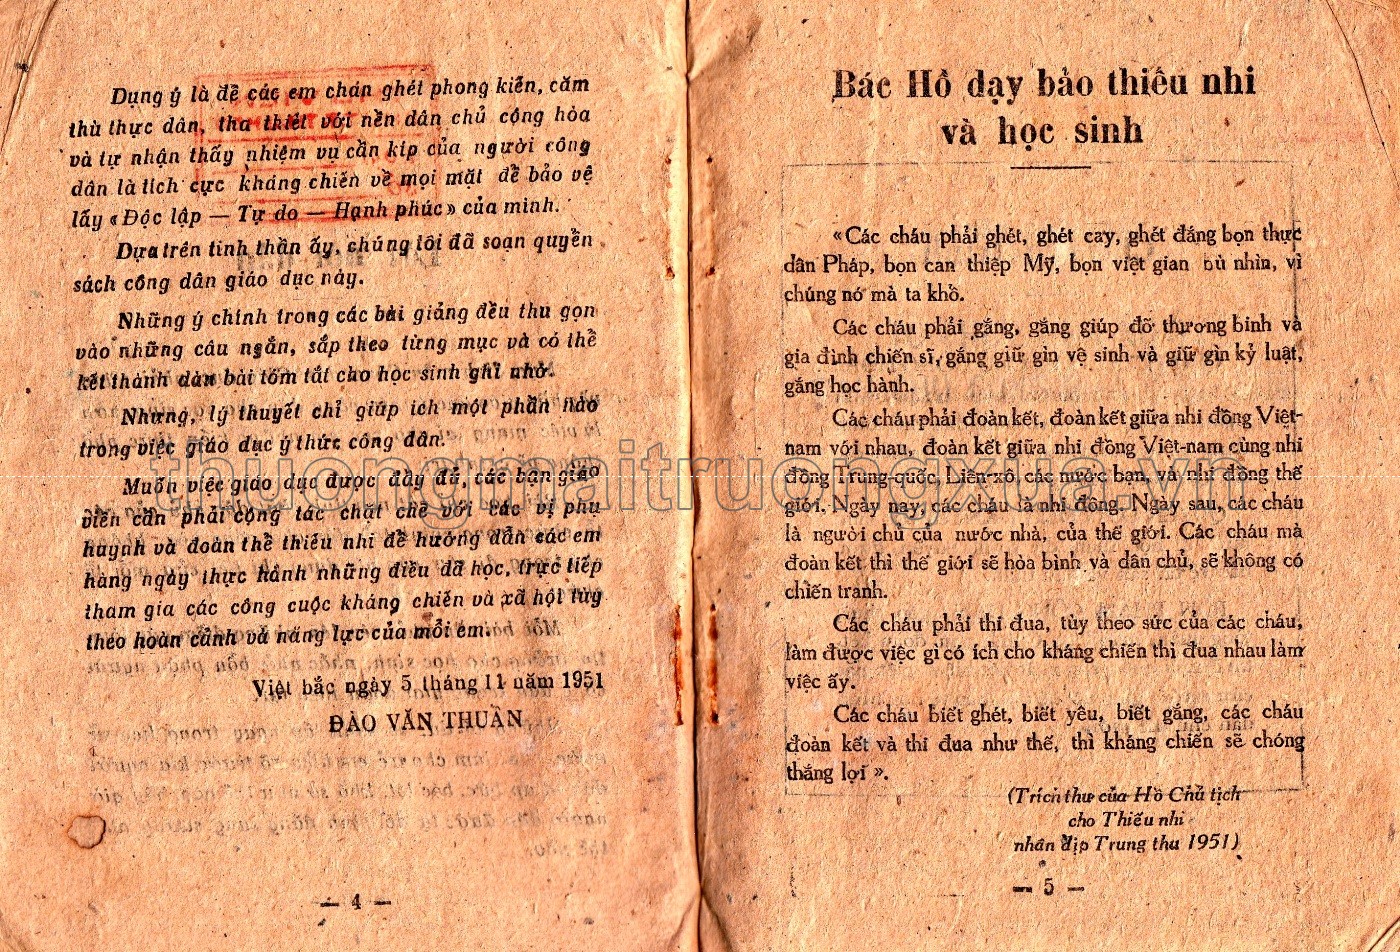 Dụng ý là để các em chán ghét phong kiến, căm
thù thực dân, tha thiết với nền dân chủ cộng hòa
và tự nhận thấy nhiệm vụ cần kíp của người công
dân là tích cực kháng chiến về mọi mặt để bảo vệ
lấy «Độc lập — Tự do — Hạnh phúc» của mình.
Dựa trên tinh thần ấy, chúng tôi đã soạn quyển
sách công dân giáo dục này.
Những ý chính trong các bài giảng đều thu gọn
vào những câu ngắn, sắp theo từng mục và có thể
kết thành dàn bài tóm tắt cho học sinh ghi nhớ.
Nhưng, lý thuyết chỉ giúp ích một phần nào
trong việc giáo dục ý thức công dân.
Muốn việc giáo dục được đầy đủ, các bạn giáo
viên cần phải cộng tác chặt chẽ với các vị phụ
huynh và đoàn thể thiếu nhi để hướng dẫn các em
hàng ngày thực hành những điều đã học, trực tiếp
tham gia các công cuộc kháng chiến và xã hội tùy
theo hoàn cảnh và năng lực của mỗi em.
Việt bắc ngày 5 tháng 11 năm 1951
ĐÀO VĂN THUẦN
— 4 —
Bác Hồ dạy bảo thiếu nhi
và học sinh
«Các cháu phải ghét, ghét cay, ghét đắng bọn thực
dân Pháp, bọn can thiệp Mỹ, bọn việt gian bù nhìn, vì
chúng nó mà ta khổ.
Các cháu phải gắng, gắng giúp đỡ thương binh và
gia đình chiến sĩ, gắng giữ gìn vệ sinh và giữ gìn kỷ luật,
gắng học hành.
Các cháu phải đoàn kết, đoàn kết giữa nhi đồng Việt-
nam với nhau, đoàn kết giữa nhi đồng Việt-nam cùng nhi
đồng Trung-quốc, Liên-xô, các nước bạn, và nhi đồng thế
giới. Ngày nay, các cháu là nhi đồng. Ngày sau, các cháu
là người chủ của nước nhà, của thế giới. Các cháu mà
đoàn kết thì thế giới sẽ hòa bình và dân chủ, sẽ không có
chiến tranh.
Các cháu phải thi đua, tùy theo sức của các cháu,
làm được việc gì có ích cho kháng chiến thì đua nhau làm
việc ấy.
Các cháu biết ghét, biết yêu, biết gắng, các cháu
đoàn kết và thi đua như thế, thì kháng chiến sẽ chóng
thắng lợi ».
(Trích thư của Hồ Chủ tịch
cho Thiếu nhi
nhân dịp Trung thu 1951)
— 5 —
thuongmaitruongxua.vn